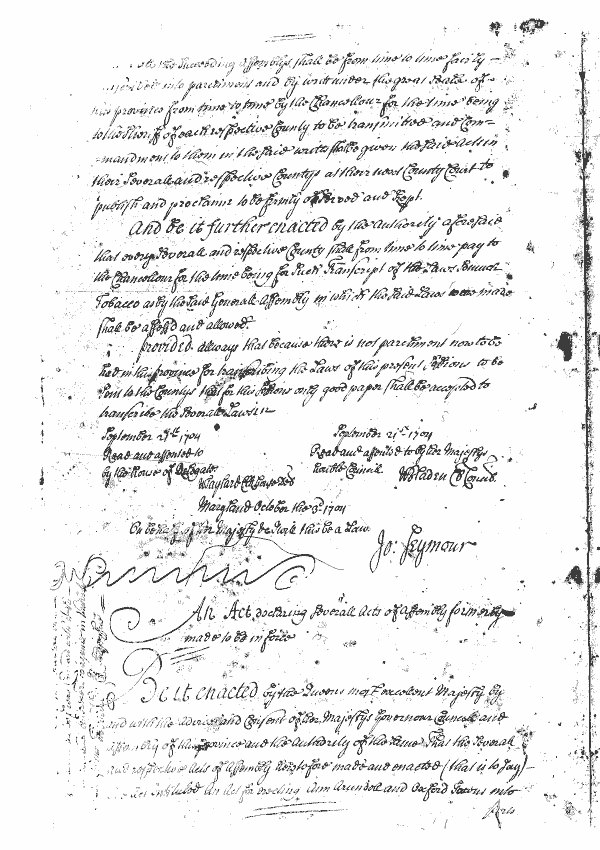 the Succeeding Assemblys shall be from time to time fairly
into parchment and by writt under the great Seale of
this province from time to time by the Chancellour for the time being
to the Sheriff of each respective County to be transmitted and Com=
=mandment to them in the said writts shall be given the said Acts in
their severall and respective Countys at their next County Court to
publish and proclaime to be firmly observed and kept.
And be it further enacted by the Authority aforesaid
that every severall and respective County shall from time to time pay to
the Chancellour for the time being for such Transcript of the Laws
Tobacco as by the said Generall Assembly in which the said Laws were made
shall be assessed and allowed.
provided allways that because there is not parchment now to be
had in this province for transcribing the Laws of this present Sessions to be
sent to the Countys that for this Sessions only good paper shall be accepted to
transcribe the severall Laws in
September 21st 1704
Read and assented to
by the House of Delegates
W Taylard Cl house Del
September 21st 1704
Read and assented to by her Majestys
honble Councill W Bladen Cl Concil.
Maryland October the 3d 1704
On behalf of her Majesty &c I will this be a Law.
Jo: Seymour
An Act declaring severall Acts of Assembly formerly
made to be in force
Be it enacted by the Queens most excellent Majesty by
and with the advice and Consent of her Majestys Governour Councill and
Assembly of this province and the Authority of the same That the severall
and respective Acts of Assembly heretofore made and enacted (that is to say)
Act Intituled An Act for erecting Ann Arundell and Oxford Towns into
ports